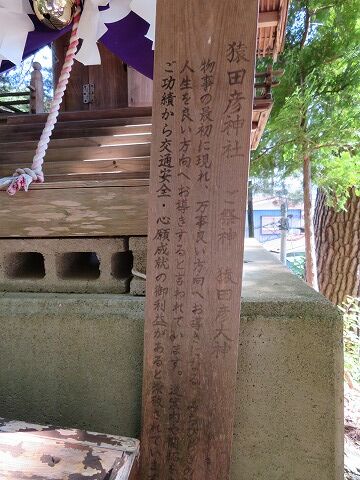 猿田彦神社 ご祭神 猿田彦大神
物事の最初に現れ、万事良い方向へお導き
人生を良い方向へお導きすると言われています。
ご功績から交通安全・心願成就の御利益があると崇敬されて